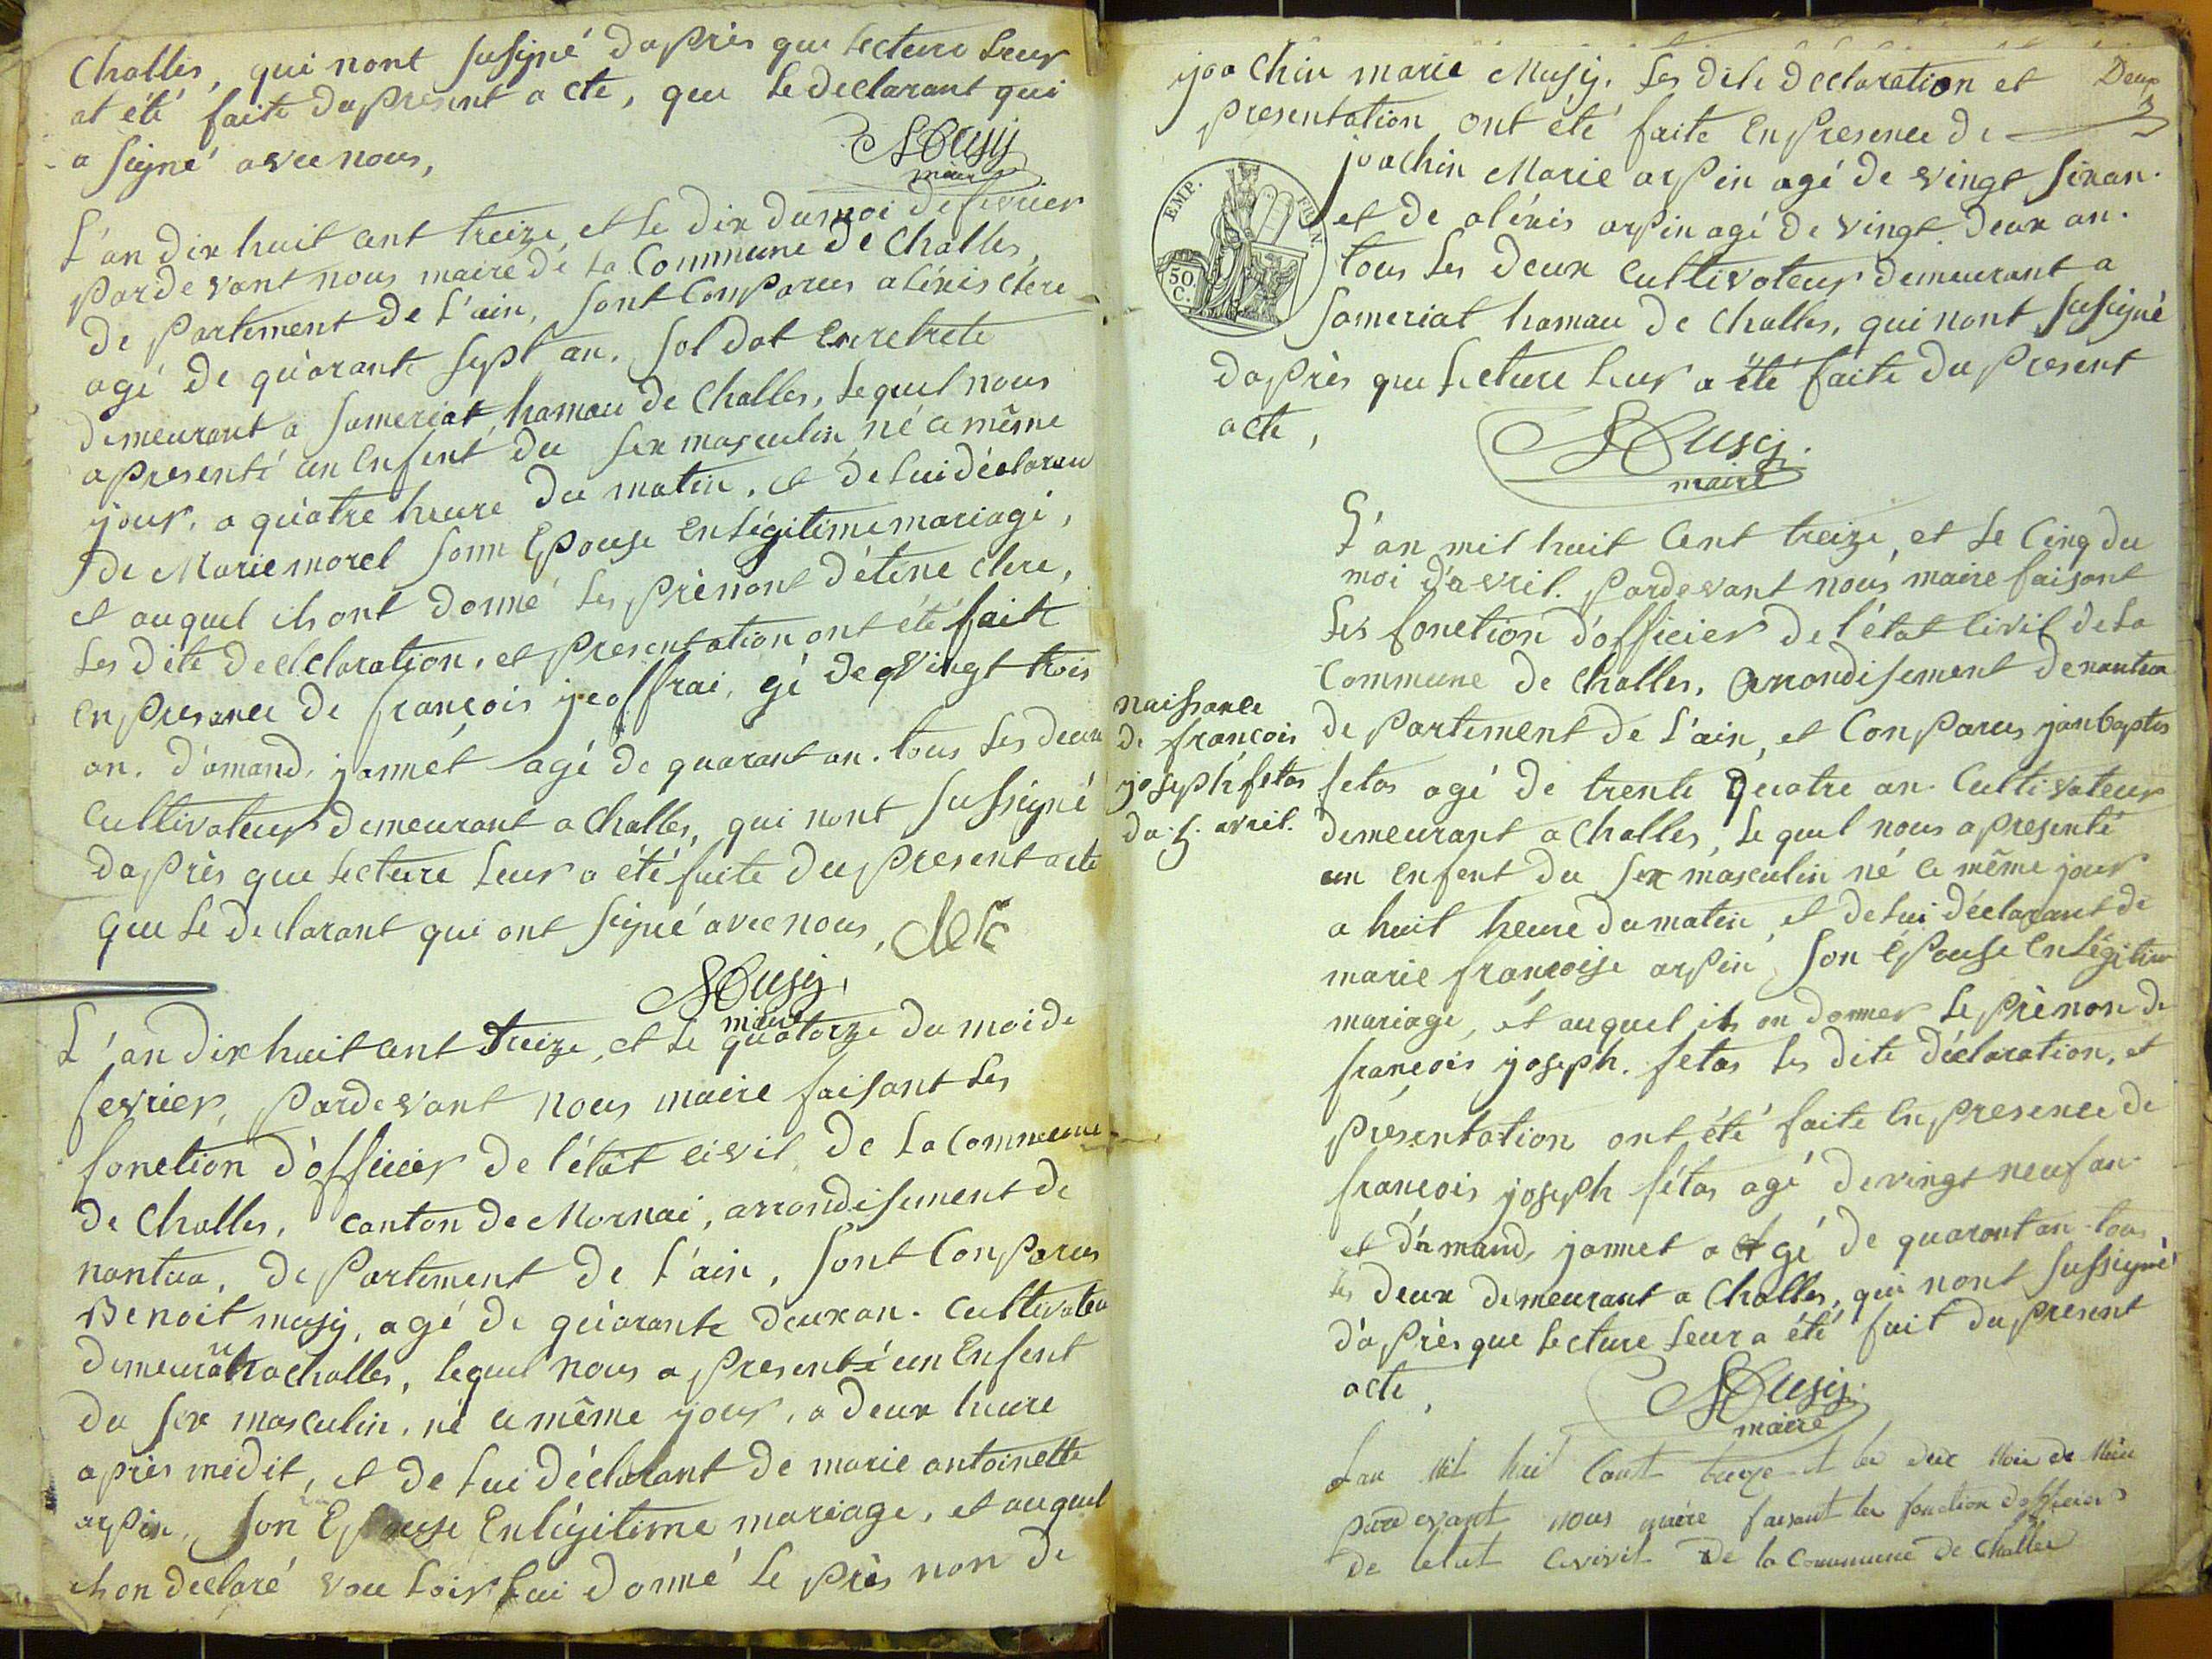 Challes, qui nont susigné daprès que Lecture Leur
at été faite du present acte, que Le declarant qui
a signé avec nous,
Musy
maire
L'an dix huit cent treize, et Le dix du moi de fevrier
pardevant nous maire de La Commune de Challes,
departement de L'ain, sont Comparus alexis clere
agé de quarante sept an. soldat en retrete
demeurant a sameriat, hamau de Challes, Lequel nous
apresenté un Enfent du sex masculin, né ce même
jour, a quatre heure du matin, et de Lui déclaran
de Marie morel sonn Epouse en Légitime mariage,
et auquel ils ont donné Les prénont d'étene clere,
Les dite declclaration, et presentation ont été faite
en presance de françois jeoffrai, gé de vingt trois
an. d'amand, jannet agé de quarant an. tous Les deux
Cultivateur demeurant a Challes, qui nont sussigné
daprès que Lecture Leur a été faite du present acte
que Le declarant qui ont signé avec nous,
Musy
maire
L'an dix huit cent Treize, et Le quatorze du moi de
fevrier, pardevant nous maire faisant Les
fonction d'officier de l'état civil de La Commune
de Challes, canton de Mornai, arrondisement de
nantua, departement de L'ain, sont Comparus
Benoit musy, agé de quarante deux an. cultivateu
demeurant a Challes, lequel nous a presenté un Enfent
du sex masculin, né ce même jour, a deux heure
après midit, et de Lui déclarant de marie antoinette
arpin, son Epouse En légitime mariage, et auquel
ils on declaré vou Loir Lui donné Le près non de
joachin marie Musy. Les dite declaration et
Deux
presentation ont été faite en Presence de
joachin Marie arpin agé de vingt sixan.
EMP.
50.
C.
et de aléxis arpin agé de vingt deux an.
tous Les deux Cultivateur demeurant a
Sameriat hamau de Challes, qui nont susigné
daprès que Lecture Leur a été faite du present
acte,
Musy.
maire
L'an mil huit Cent treize, et Le Cinq du
moi d'avril. pardevant nous maire faisant
Les fonction d'officier de l'état Civil de La
Commune de Challes, arrondisement de nantua
naissance
de françois
joseph fetas
du 5. avril.
departement de L'ain, et Comparus janbaptis
fetas agé de trente quatre an. Cultivateur
demeurant a Challes, Lequel nous apresenté
un enfent du sex masculin né ce même jour
a huit heure du matin, et de Lui déclarant de
marie françoise arpin, son épouse en Légitim
mariage, et auquel ils on donner Le prènon de
françois joseph. fetas Les dite déclaration, et
présentation ont été faite en presence de
françois joseph fétas agé de vingt neuf an.
et d'amand, jannet agé de quarant an. tous
Les deux demeurant a Challes, qui nont sussigné
d'après que Lecture Leur a été fait du present
acte,
Musy.
maire
Lan mil huit Cent treize et le
pardevant nous maire faisant les fonction dofficier
de letat civil de la Commune de Challes